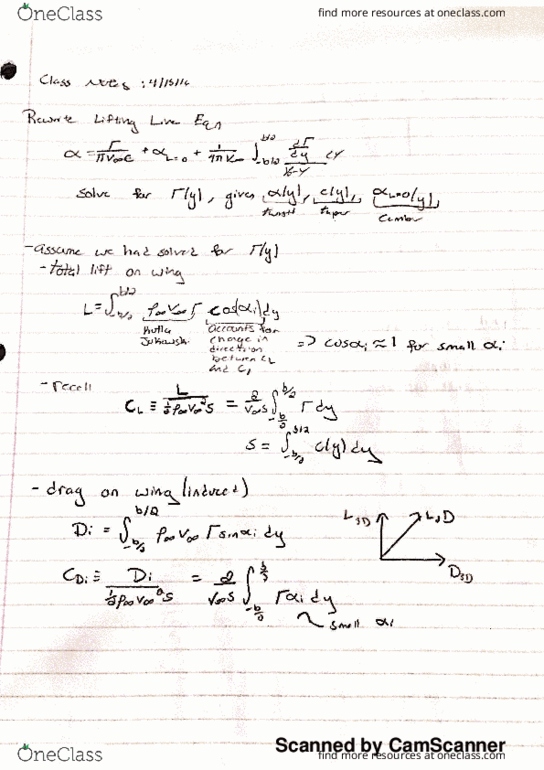 OneClass
find more resources at oneclass.com
Class Notes : 4/15/16
Rewrite Lifting Line Eqn
α = Γ/(πV∞c) + αL=0 + 1/(4πV∞) ∫_{-b/2}^{b/2} (dΓ/dy)/(y₀-y) dy
Solve for Γ(y), given α(y), c(y), αL=0(y)
twist taper camber
- assume we had solved for Γ(y)
- total lift on wing
L = ∫_{-b/2}^{b/2} ρ∞V∞Γ cos(αi) dy
Kutta Jukowski
accounts for change in direction between CL and Cl
=> cosαi ≈ 1 for small αi
- recall
CL ≡ L/(½ρ∞V∞²S) = 2/(V∞S) ∫_{-b/2}^{b/2} Γ dy
S = ∫_{-b/2}^{b/2} c(y) dy
- drag on wing (induced)
Di = ∫_{-b/2}^{b/2} ρ∞V∞ Γ sinαi dy
L3D L2D D3D
CDi ≡ Di/(½ρ∞V∞²S) = 2/(V∞S) ∫_{-b/2}^{b/2} Γαi dy
small αi
Scanned by CamScanner
OneClass
find more resources at oneclass.com